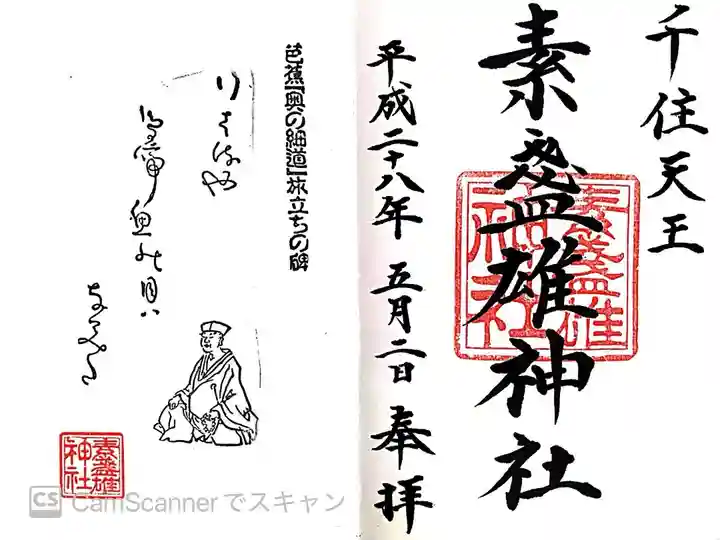 千住天王
素盞雄神社
素盞雄神社
平成二十八年 五月二日 奉拝
芭蕉『奥の細道』旅立ちの碑
行くはるや
鳥啼魚の目八
なみだ
素盞雄神社
CS CamScannerでスキャン